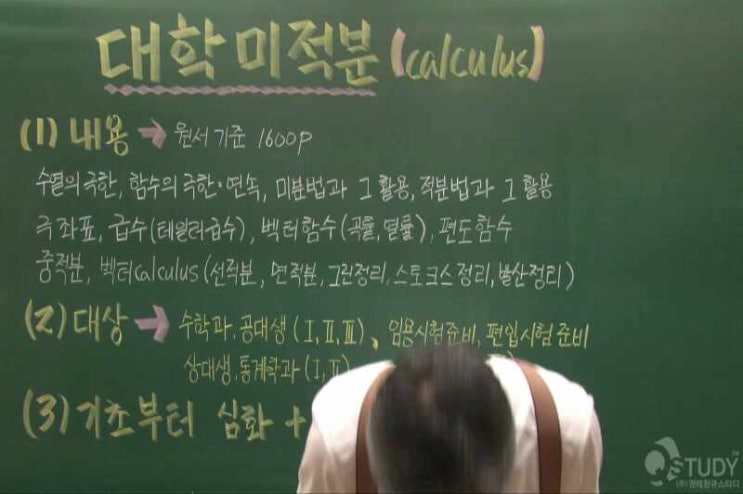 대학 미적분 (calculus)
(1) 내용 → 원서 기준 1600p
수열의 극한, 함수의 극한·연속, 미분법과 그 활용, 적분법과 그 활용
극좌표, 급수(테일러급수), 벡터함수(곡률, 열률), 편도함수
중적분, 벡터calculus(선적분, 면적분, 그린정리, 스토크스 정리, 발산정리)
(2) 대상 → 수학과, 공대생 (I, II, III), 임용시험준비, 편입시험 준비
상대생, 통계학과 (I, II
(3) 기초부터 심화 +
QSTUDY